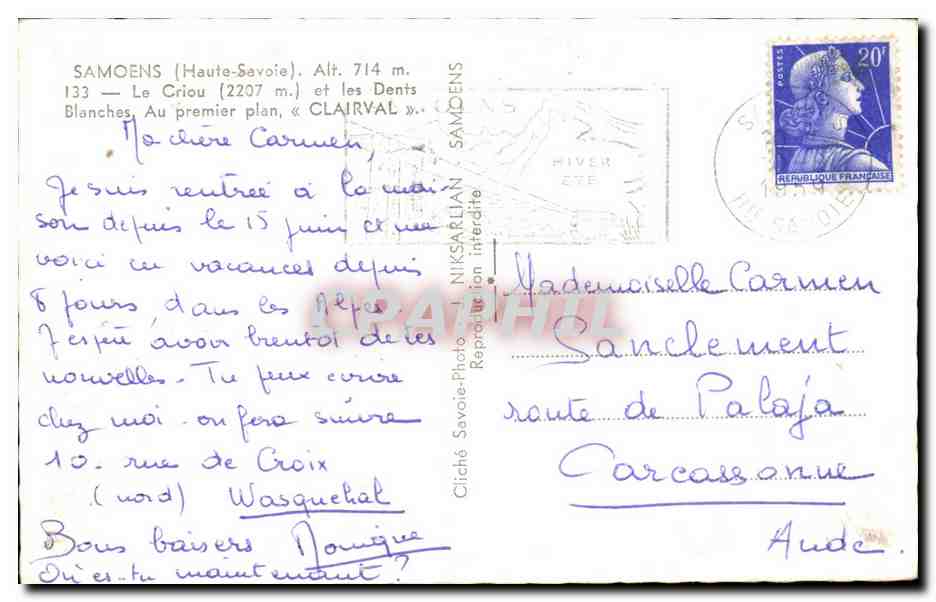 SAMOENS (Haute-Savoie). Alt. 714 m.
133 — Le Criou (2207 m.) et les Dents
Blanches. Au premier plan, « CLAIRVAL ».
Ma chère Carmen,
Je suis rentrée à la mai-
son depuis le 15 juin et me
voici en vacances depuis
8 jours, dans les Alpes
J'espère avoir bientôt de tes
nouvelles. Tu peux écrire
chez moi on fera suivre
10. rue de Croix
(nord) Wasquehal
Bons baisers Monique
Où es-tu maintenant?
Cliché Savoie-Photo J. NIKSARLIAN - SAMOENS
Reproduction interdite
HIVER
ETE
POSTES
20F
REPUBLIQUE FRANÇAISE
1959
HTE SAVOIE
Mademoiselle Carmen
Sanclement
route de Palaja
Carcassonne
Aude.
CPAPHIL